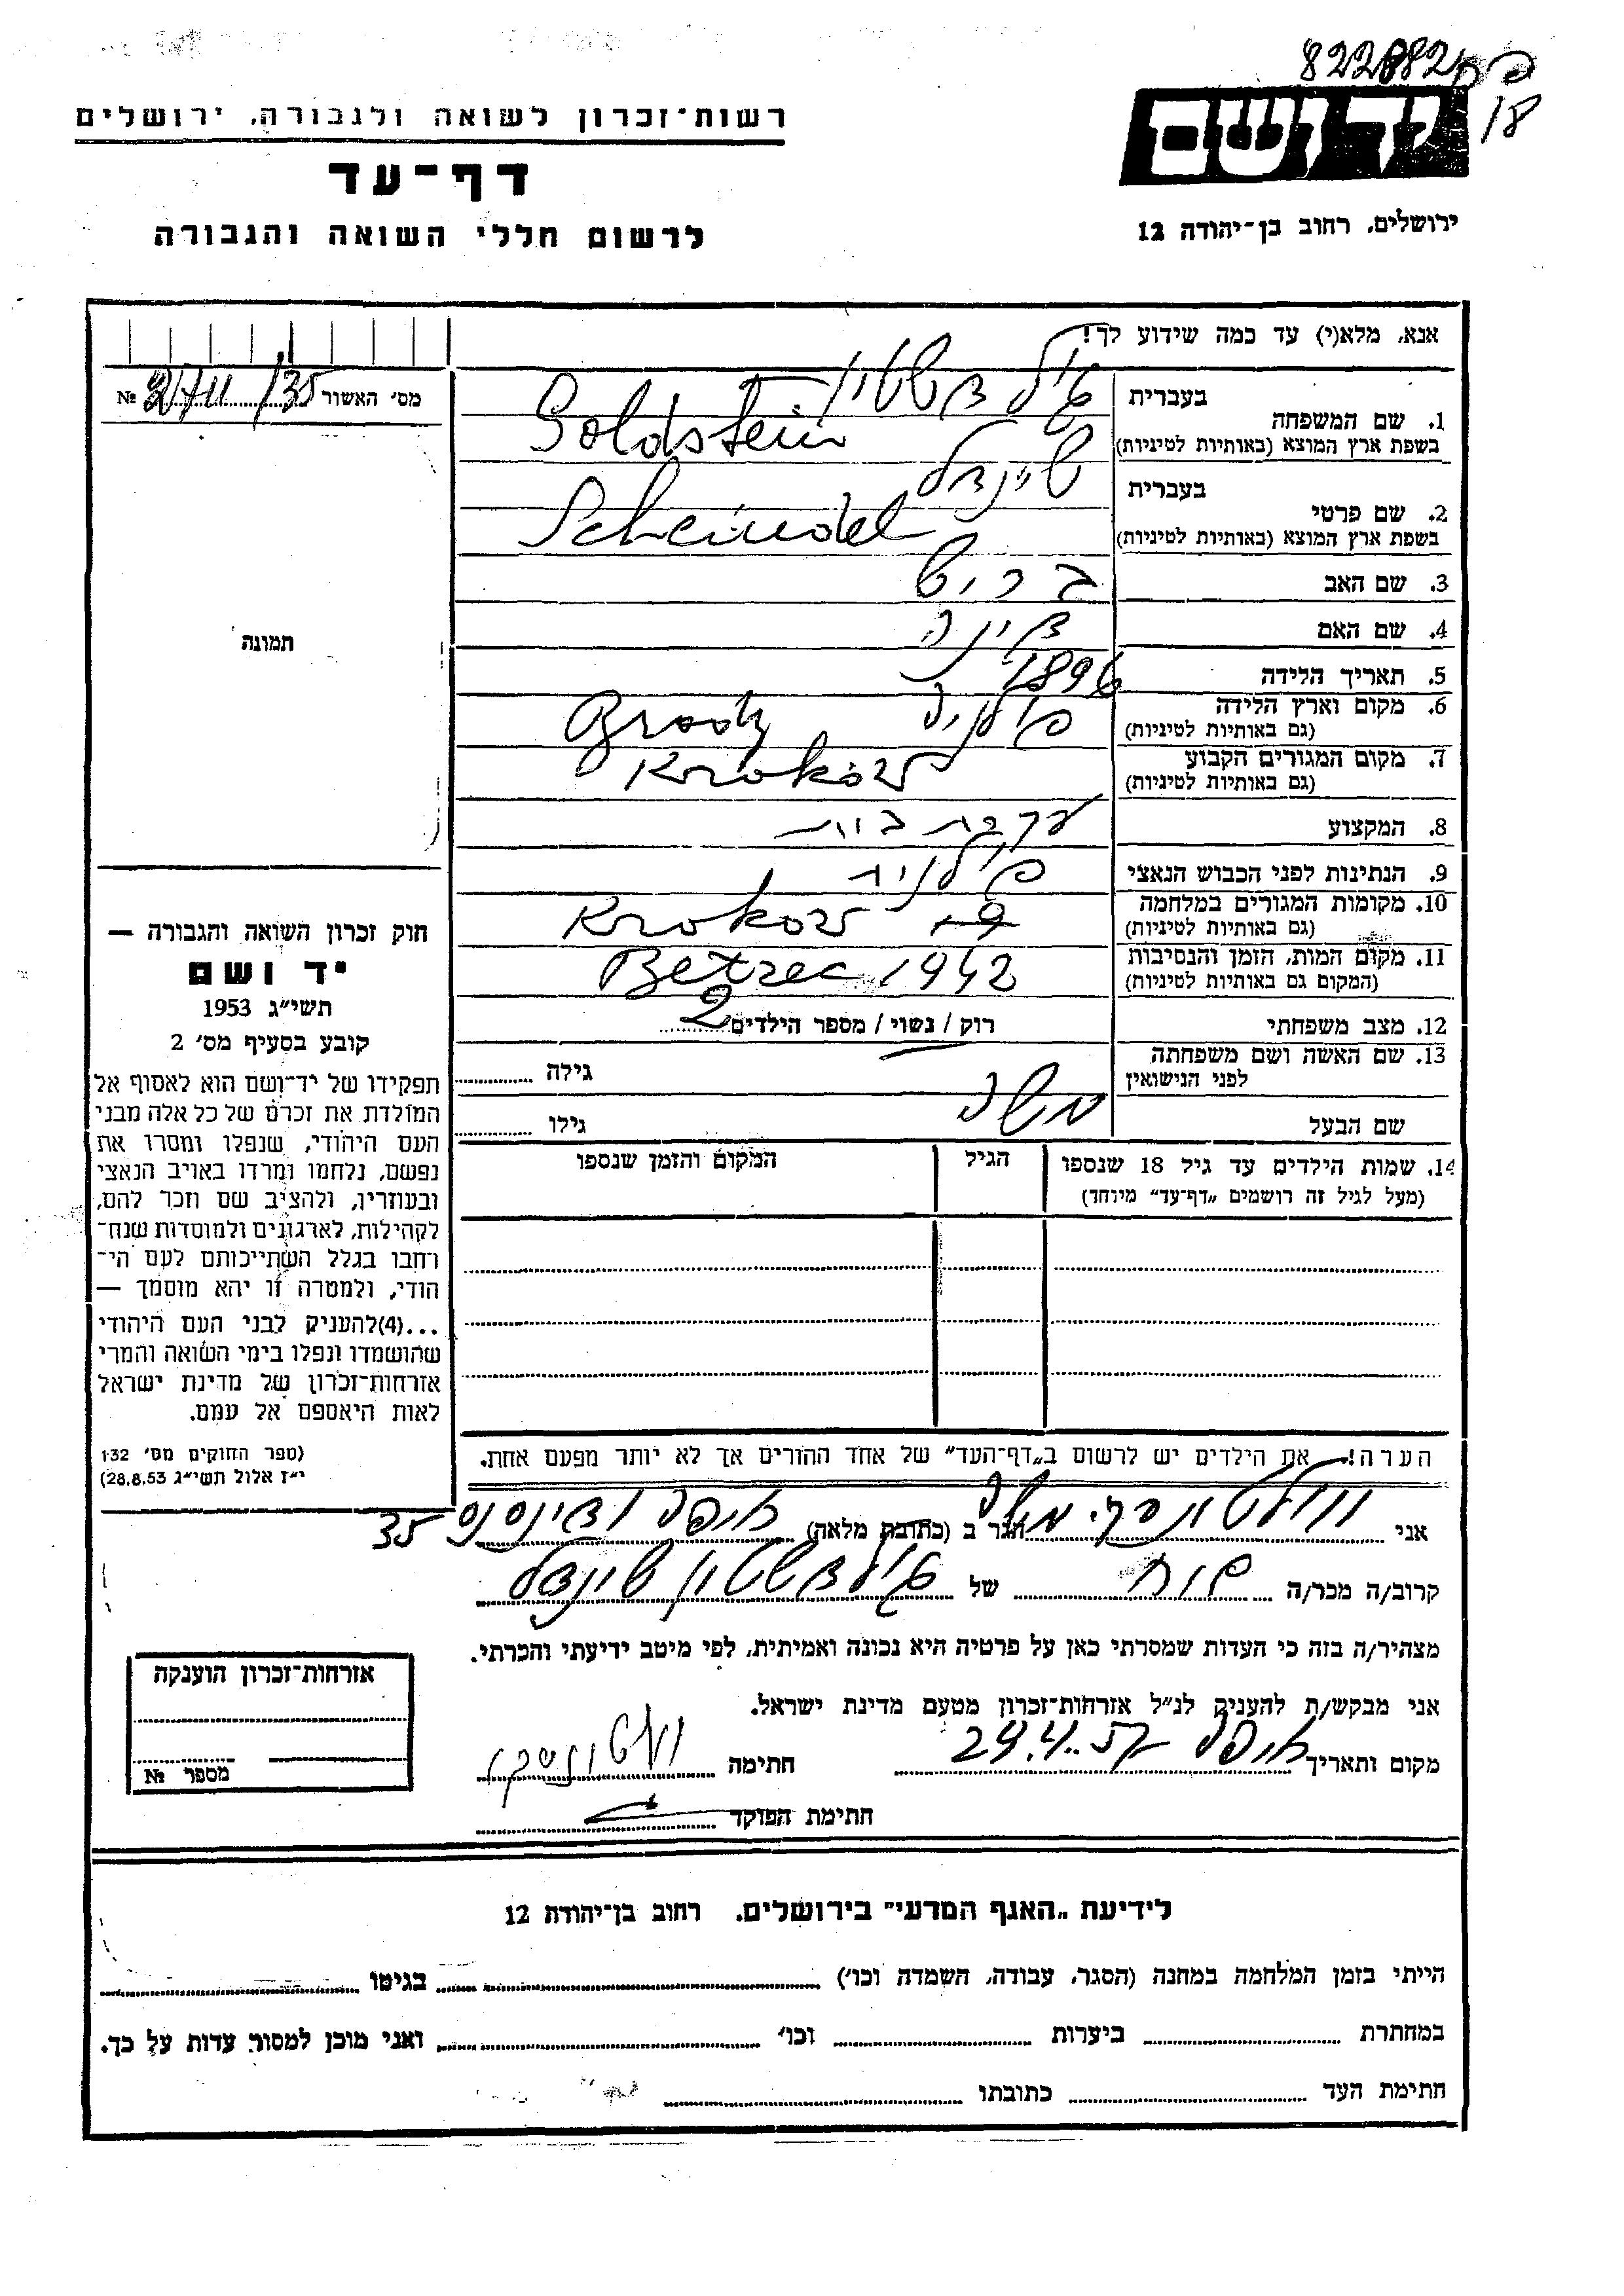 822882
18
יד ושם
רשות־זכרון לשואה ולגבורה, ירושלים
דף־עד
לרשום חללי השואה והגבורה
ירושלים, רחוב בן־יהודה 12
אנא, מלא(י) עד כמה שידוע לך!
מס׳ האשור 35 №
1. שם המשפחה בעברית גולדשטיין
בשפת ארץ המוצא (באותיות לטיניות) Goldstein
2. שם פרטי בעברית שיינדל
בשפת ארץ המוצא (באותיות לטיניות) Scheindel
3. שם האב
4. שם האם דינה
5. תאריך הלידה 1896
6. מקום וארץ הלידה פולניה Brody
(גם באותיות לטיניות)
7. מקום המגורים הקבוע Kroków
(גם באותיות לטיניות)
8. המקצוע עקרת בית
9. הנתינות לפני הכבוש הנאצי פולנית
10. מקומות המגורים במלחמה Krokow
(גם באותיות לטיניות)
11. מקום המות, הזמן והנסיבות Betzec 1942
(המקום גם באותיות לטיניות)
12. מצב משפחתי רוק / נשוי / מספר הילדים 2
13. שם האשה ושם משפחתה לפני הנישואין גילה
שם הבעל משה גילו
14. שמות הילדים עד גיל 18 שנספו הגיל המקום והזמן שנספו
(מעל לגיל זה רושמים „דף־עד” מיוחד)
הערה! את הילדים יש לרשום ב„דף־העד” של אחד ההורים אך לא יותר מפעם אחת.
תמונה
חוק זכרון השואה והגבורה —
יד ושם
תשי״ג 1953
קובע בסעיף מס׳ 2
תפקידו של יד־ושם הוא לאסוף אל
המולדת את זכרם של כל אלה מבני
העם היהודי, שנפלו ומסרו את
נפשם, נלחמו ומרדו באויב הנאצי
ובעוזריו, ולהציב שם וזכר להם,
לקהילות, לארגונים ולמוסדות שנח־
רחבו בגלל השתייכותם לעם הי־
הודי, ולמטרה זו יהא מוסמך —
...(4)להעניק לבני העם היהודי
שהושמדו ונפלו בימי השואה והמרי
אזרחות־זכרון של מדינת ישראל
לאות היאספם אל עמם.
(ספר החוקים מס׳ 132
י״ז אלול תשי״ג 28.8.53)
אני משה הגר ב (כתובת מלאה) חיפה 35
קרוב/ה מכר/ה של גולדשטיין שיינדל
מצהיר/ה בזה כי העדות שמסרתי כאן על פרטיה היא נכונה ואמיתית, לפי מיטב ידיעתי והכרתי.
אני מבקש/ת להעניק לנ״ל אזרחות־זכרון מטעם מדינת ישראל.
מקום ותאריך חיפה 24.4.57 חתימה
חתימת הפוקד
אזרחות־זכרון הוענקה
מספר №
לידיעת „האגף המדעי” בירושלים, רחוב בן־יהודה 12
הייתי בזמן המלחמה במחנה (הסגר, עבודה, השמדה וכו׳) בגיטו
במחתרת ביערות וכו׳ ואני מוכן למסור עדות על כך.
חתימת העד כתובתו